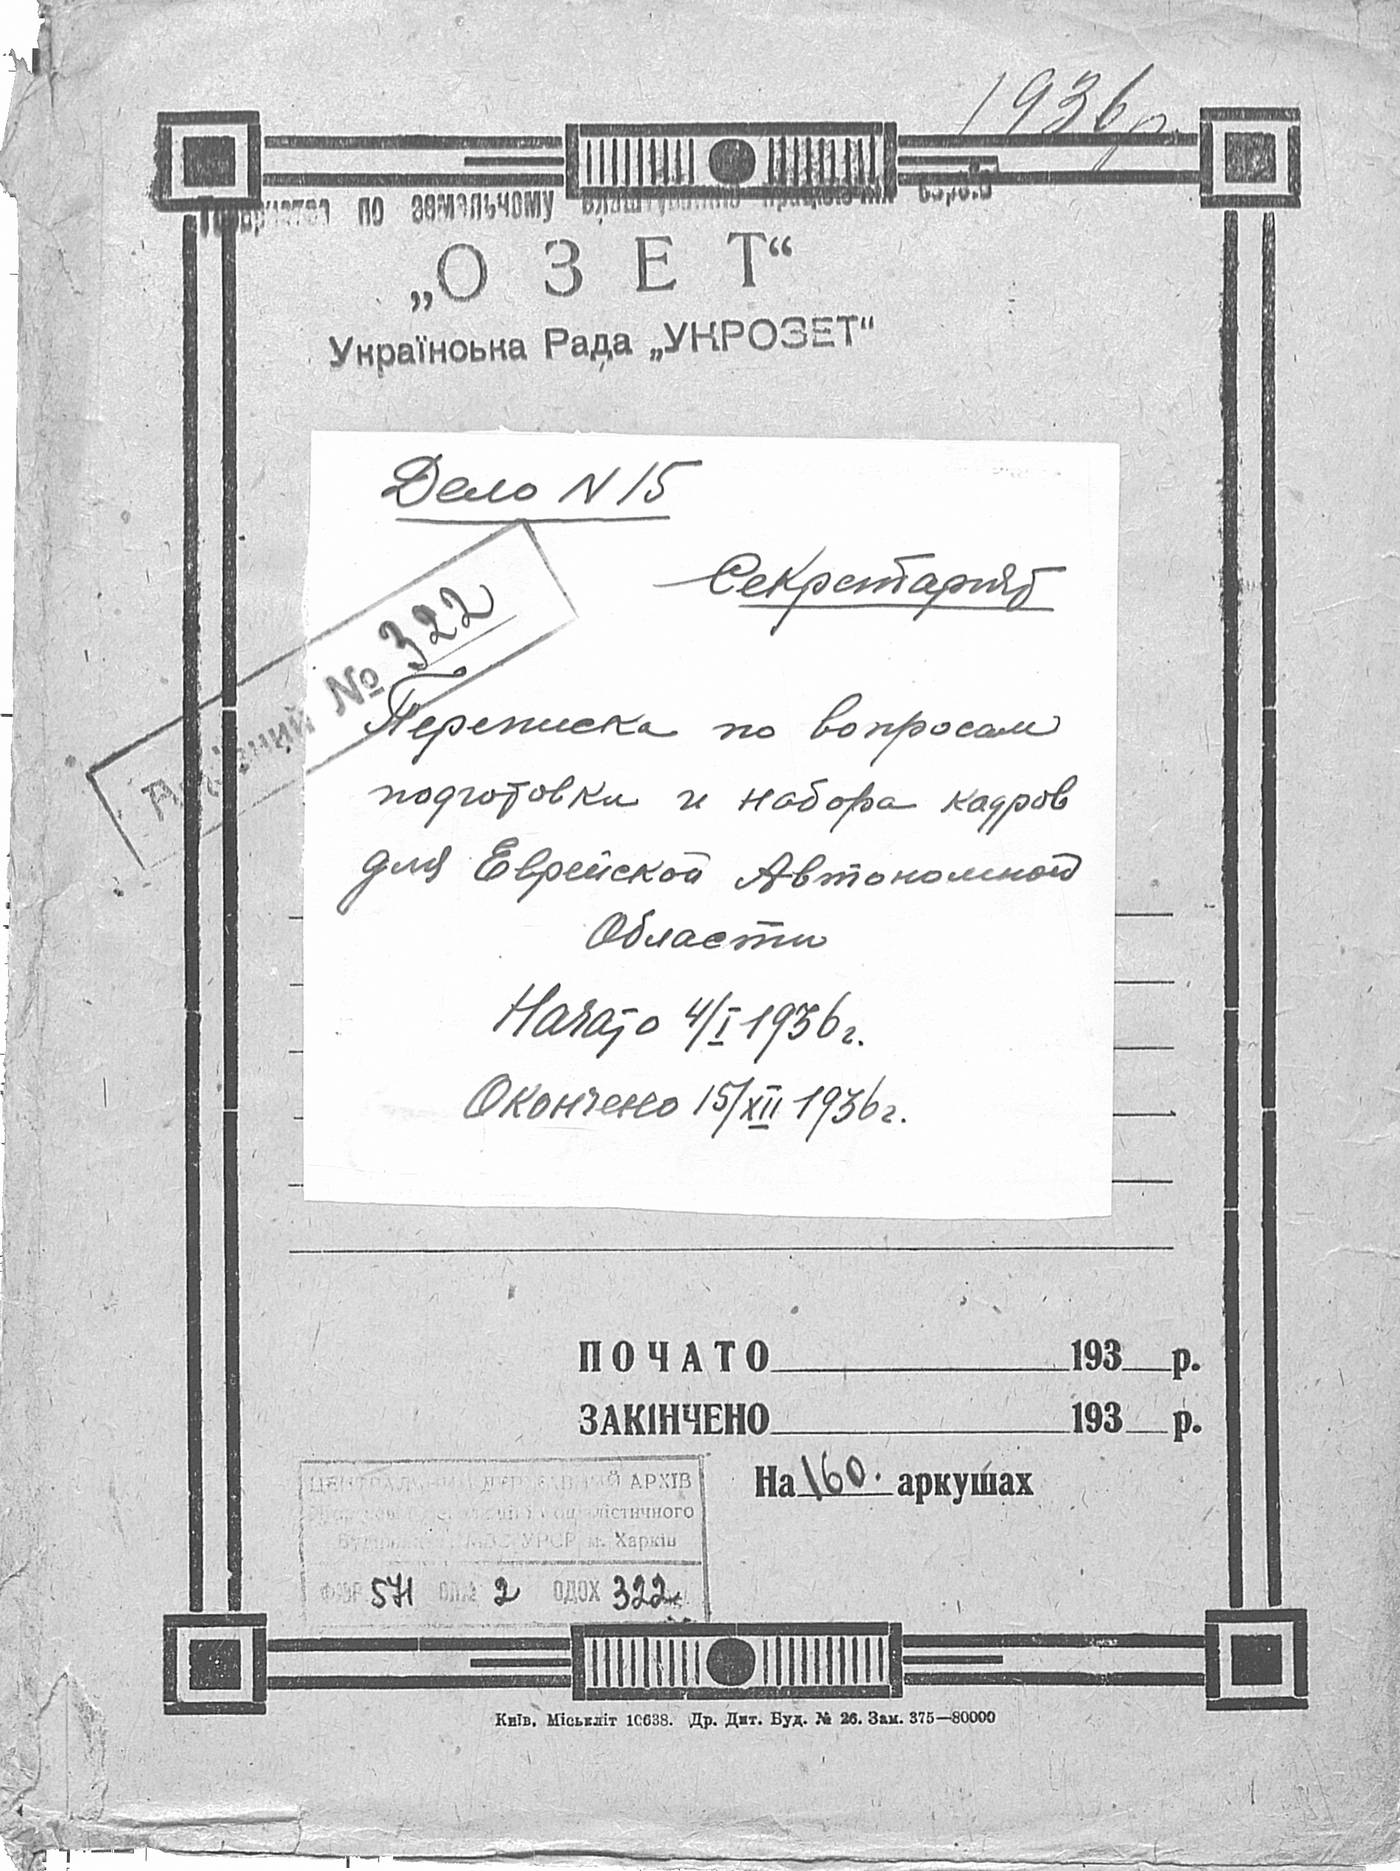 1936 г.
по земельному влаштуванню
„ОЗЕТ“
Українська Рада „УКРОЗЕТ“
Дело N 15
Секретарият
Архівний № 322
Переписка по вопросам
подготовки и набора кадров
для Еврейской Автономной
Области
Начато 4/I 1936 г.
Окончено 15/XII 1936 г.
ПОЧАТО 193 р.
ЗАКІНЧЕНО 193 р.
На 160. аркушах
ЦЕНТРАЛЬНИЙ ДЕРЖАВНИЙ АРХІВ
соціалістичного
МВС УРСР м. Харків
ФОНД 571 ОПИС 2 ОДОХ 322
Київ, Міськліт 10638. Др. Дит. Буд. № 26. Зам. 375—80000